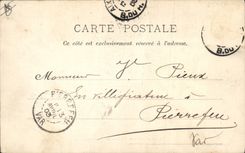 CARTE POSTALE
Ce côté est exclusivement réservé à l'adresse.
Monsieur Pieux
En villégiature à
Pierrefeu
Var
PIERREFEU
VAR
B.DU
B.DU